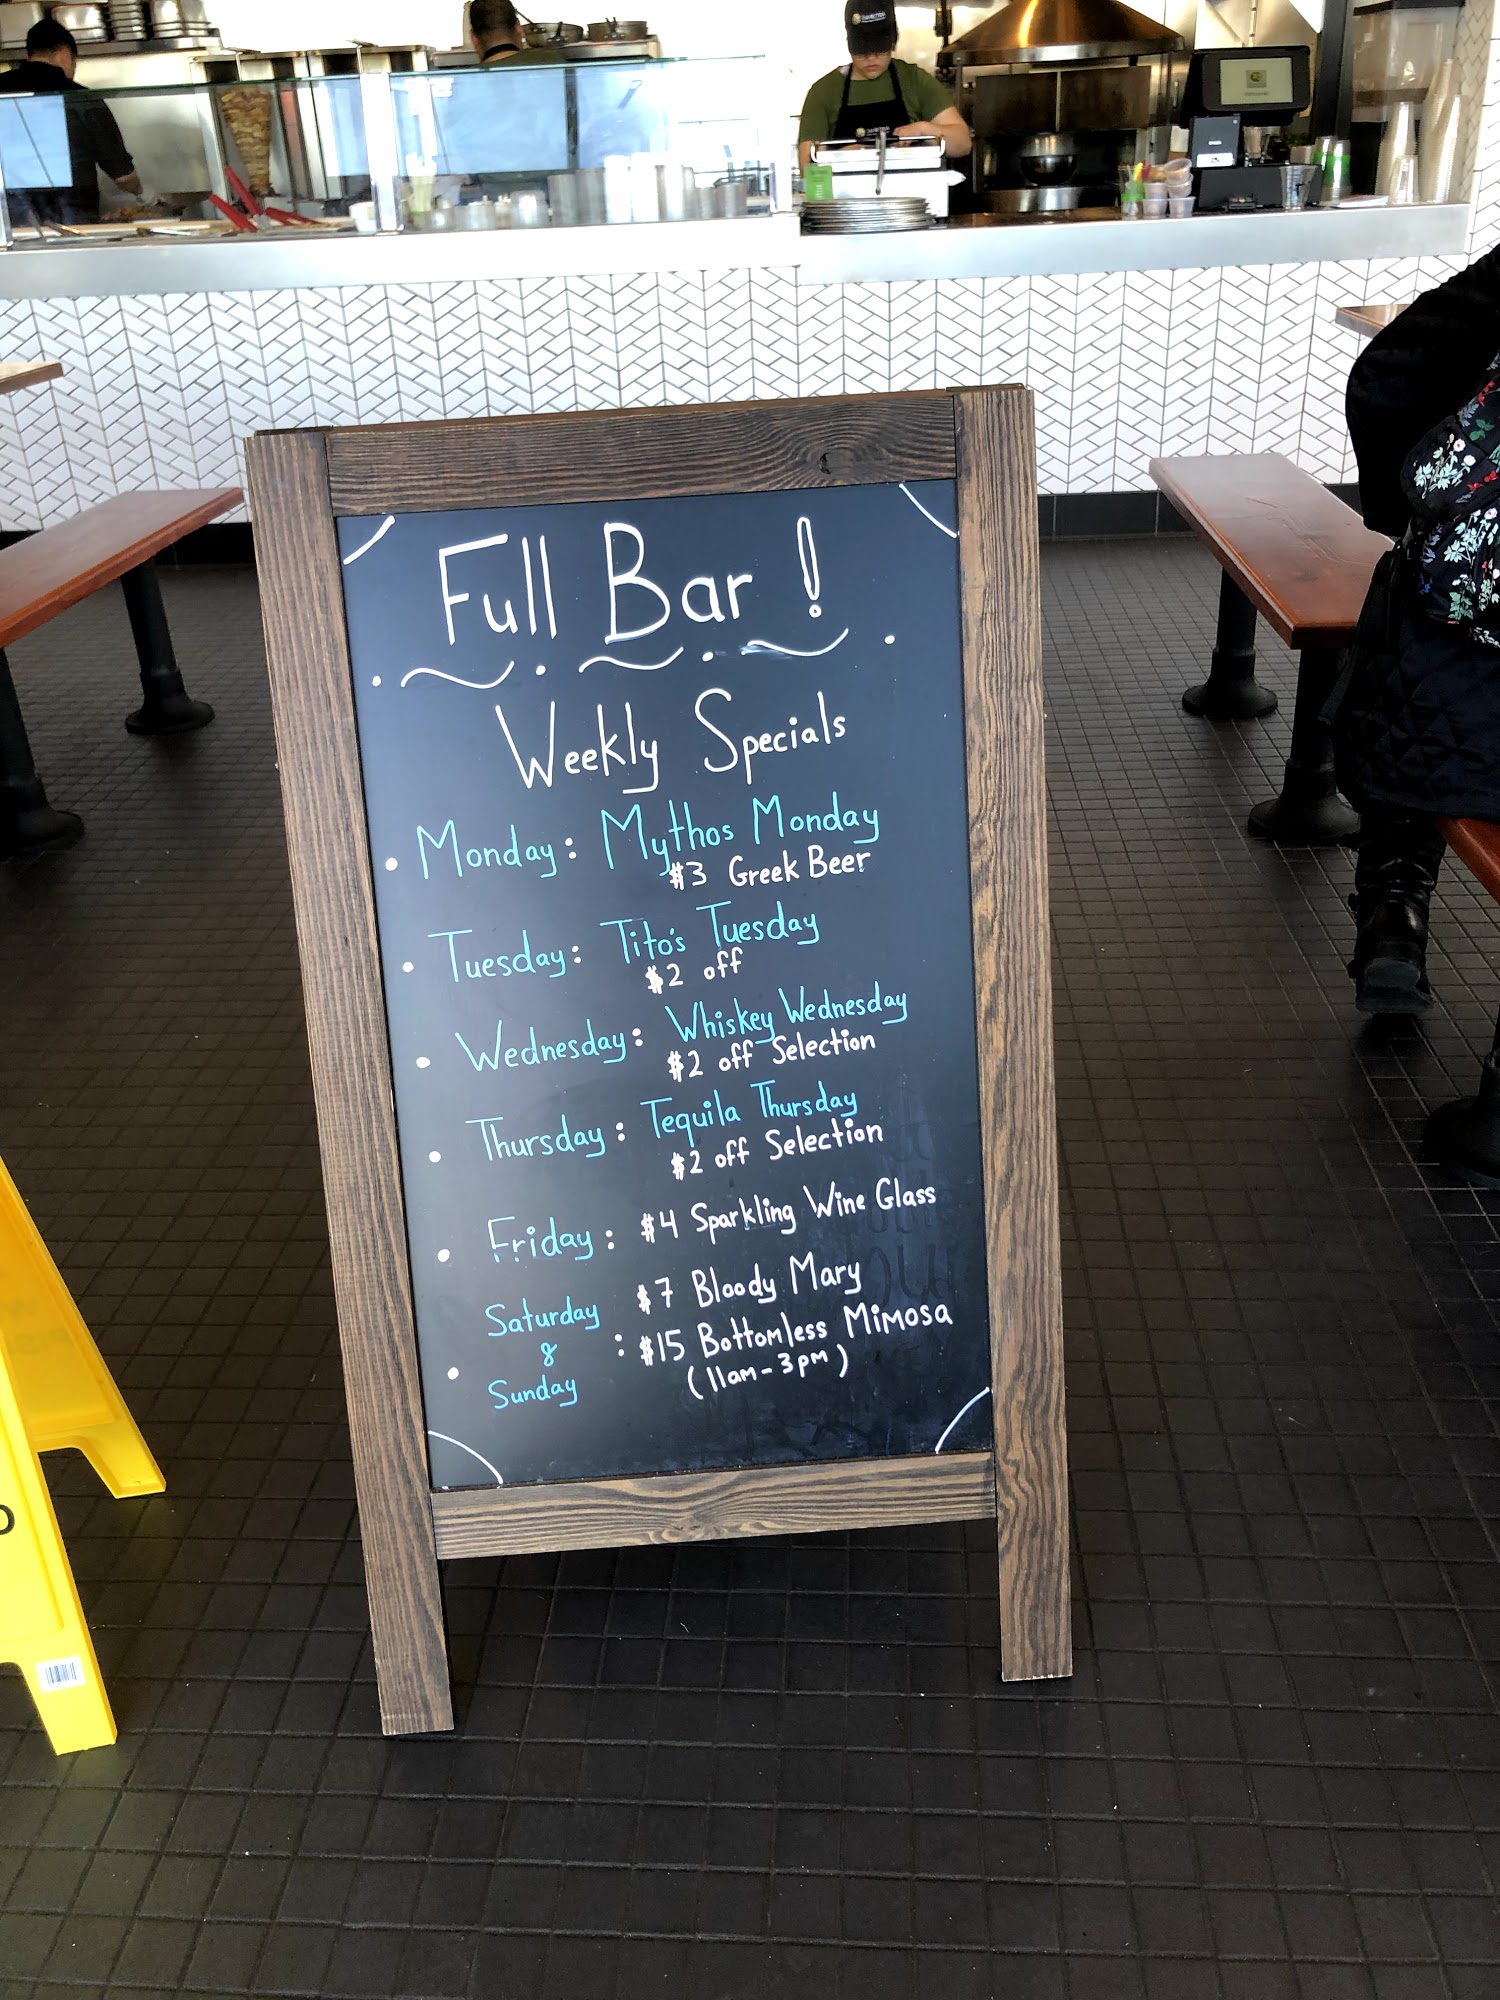 Full Bar!
Weekly Specials
• Monday: Mythos Monday
$3 Greek Beer
• Tuesday: Tito's Tuesday
$2 off
• Wednesday: Whiskey Wednesday
$2 off Selection
• Thursday: Tequila Thursday
$2 off Selection
• Friday: $4 Sparkling Wine Glass
Saturday $7 Bloody Mary
• & : $15 Bottomless Mimosa
Sunday (11am-3pm)